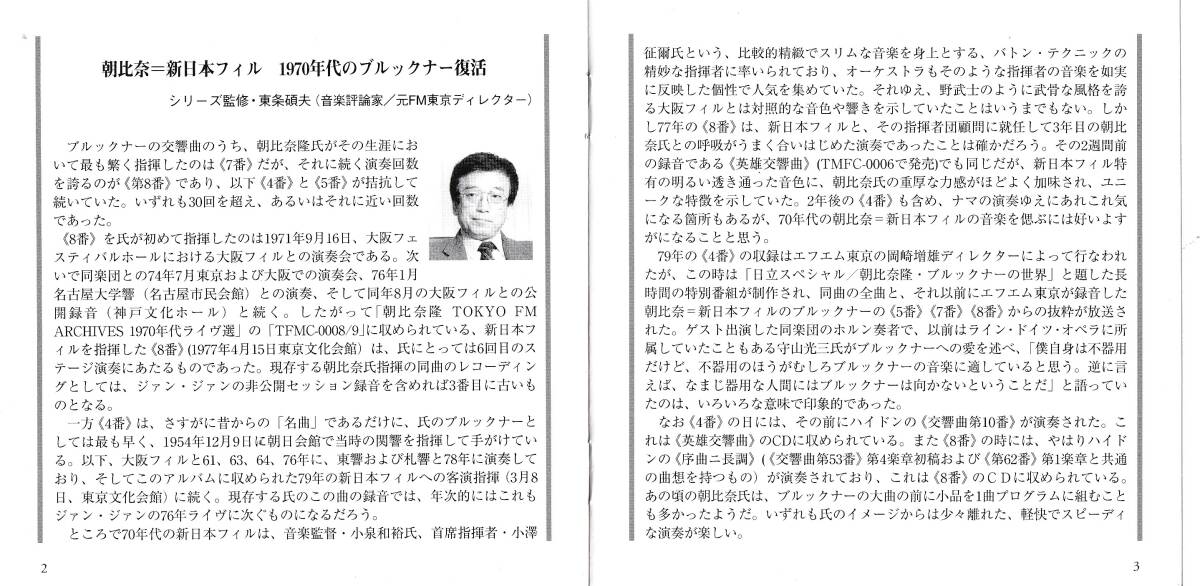 朝比奈＝新日本フィル　1970年代のブルックナー復活
シリーズ監修・東条碩夫（音楽評論家／元FM東京ディレクター）
ブルックナーの交響曲のうち、朝比奈隆氏がその生涯にお
いて最も繁く指揮したのは《7番》だが、それに続く演奏回数
を誇るのが《第8番》であり、以下《4番》と《5番》が拮抗して
続いていた。いずれも30回を超え、あるいはそれに近い回数
であった。
《8番》を氏が初めて指揮したのは1971年9月16日、大阪フェ
スティバルホールにおける大阪フィルとの演奏会である。次
いで同楽団との74年7月東京および大阪での演奏会、76年1月
名古屋大学響（名古屋市民会館）との演奏、そして同年8月の大阪フィルとの公
開録音（神戸文化ホール）と続く。したがって「朝比奈隆 TOKYO FM
ARCHIVES 1970年代ライヴ選」の「TFMC-0008/9」に収められている、新日本フ
ィルを指揮した《8番》(1977年4月15日東京文化会館）は、氏にとっては6回目のス
テージ演奏にあたるものであった。現存する朝比奈氏指揮の同曲のレコーディン
グとしては、ジァン・ジァンの非公開セッション録音を含めれば3番目に古いも
のとなる。
一方《4番》は、さすがに昔からの「名曲」であるだけに、氏のブルックナーと
しては最も早く、1954年12月9日に朝日会館で当時の関響を指揮して手がけてい
る。以下、大阪フィルと61、63、64、76年に、東響および札響と78年に演奏して
おり、そしてこのアルバムに収められた79年の新日本フィルへの客演指揮（3月8
日、東京文化会館）に続く。現存する氏のこの曲の録音では、年次的にはこれも
ジァン・ジァンの76年ライヴに次ぐものになるだろう。
ところで70年代の新日本フィルは、音楽監督・小泉和裕氏、首席指揮者・小澤
2
征爾氏という、比較的精緻でスリムな音楽を身上とする、バトン・テクニックの
精妙な指揮者に率いられており、オーケストラもそのような指揮者の音楽を如実
に反映した個性で人気を集めていた。それゆえ、野武士のように武骨な風格を誇
る大阪フィルとは対照的な音色や響きを示していたことはいうまでもない。しか
し77年の《8番》は、新日本フィルと、その指揮者団顧問に就任して3年目の朝比
奈氏との呼吸がうまく合いはじめた演奏であったことは確かだろう。その2週間前
の録音である《英雄交響曲》(TMFC-0006で発売)でも同じだが、新日本フィル特
有の明るい透き通った音色に、朝比奈氏の重厚な力感がほどよく加味され、ユニ
ークな特徴を示していた。2年後の《4番》も含め、ナマの演奏ゆえにあれこれ気
になる箇所もあるが、70年代の朝比奈＝新日本フィルの音楽を偲ぶには好いよす
がになることと思う。
79年の《4番》の収録はエフエム東京の岡崎増雄ディレクターによって行なわれ
たが、この時は「日立スペシャル／朝比奈隆・ブルックナーの世界」と題した長
時間の特別番組が制作され、同曲の全曲と、それ以前にエフエム東京が録音した
朝比奈＝新日本フィルのブルックナーの《5番》《7番》《8番》からの抜粋が放送さ
れた。ゲスト出演した同楽団のホルン奏者で、以前はライン・ドイツ・オペラに所
属していたこともある守山光三氏がブルックナーへの愛を述べ、「僕自身は不器用
だけど、不器用のほうがむしろブルックナーの音楽に適していると思う。逆に言
えば、なまじ器用な人間にはブルックナーは向かないということだ」と語ってい
たのは、いろいろな意味で印象的であった。
なお《4番》の日には、その前にハイドンの《交響曲第10番》が演奏された。こ
れは《英雄交響曲》のCDに収められている。また《8番》の時には、やはりハイド
ンの《序曲ニ長調》(《交響曲第53番》第4楽章初稿および《第62番》第1楽章と共通
の曲想を持つもの）が演奏されており、これは《8番》のＣＤに収められている。
あの頃の朝比奈氏は、ブルックナーの大曲の前に小品を1曲プログラムに組むこと
も多かったようだ。いずれも氏のイメージからは少々離れた、軽快でスピーディ
な演奏が楽しい。
3